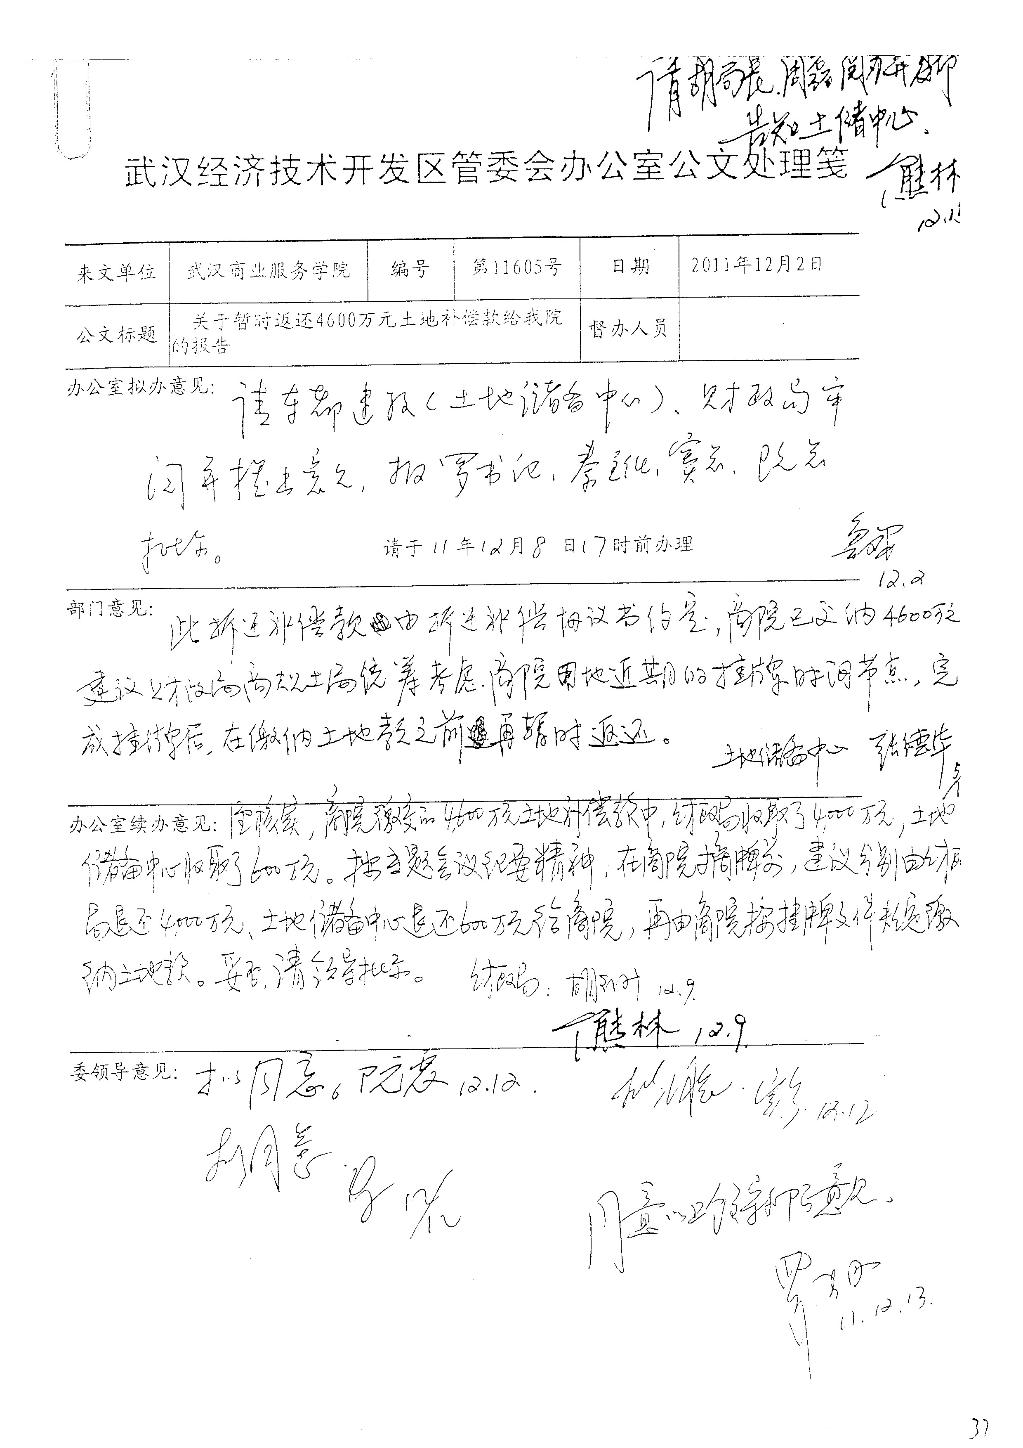 请胡局长、周磊阅并即
告知土储中心.
熊林
12.
武汉经济技术开发区管委会办公室公文处理笺
来文单位 武汉商业服务学院 编号 第11605号 日期 2011年12月2日
公文标题 关于暂时返还4600万元土地补偿款给我院的报告 督办人员
办公室拟办意见: 请车都建投(土地储备中心)、财政局审
阅并提出意见, 报罗书记、秦主任、 阮总
批示。 请于11年12月8日17时前办理
12.2
部门意见: 此拆迁补偿款由拆迁补偿协议书约定, 商院已交纳4600万元
建议财政局商国土局统筹考虑.商院用地近期的挂牌时调节点, 完
成挂牌后, 在缴纳土地款之前再暂时返还。
土地储备中心 张德华
办公室续办意见: 经核实, 商院缴交的4600万元土地补偿款中, 财政局收取了4000万元, 土地
储备中心收取了600万元。按专题会议纪要精神, 在商院摘牌前, 建议分别由财政
局退还4000万元、土地储备中心退还600万元给商院, 再由商院按挂牌文件规定缴
纳土地款。妥否, 请领导批示。 财政局: 胡 12.9
熊林 12.9
委领导意见: 拟同意。 12.12.
12.12
拟同意
同意以上领导意见.
罗
11.12.13.
37